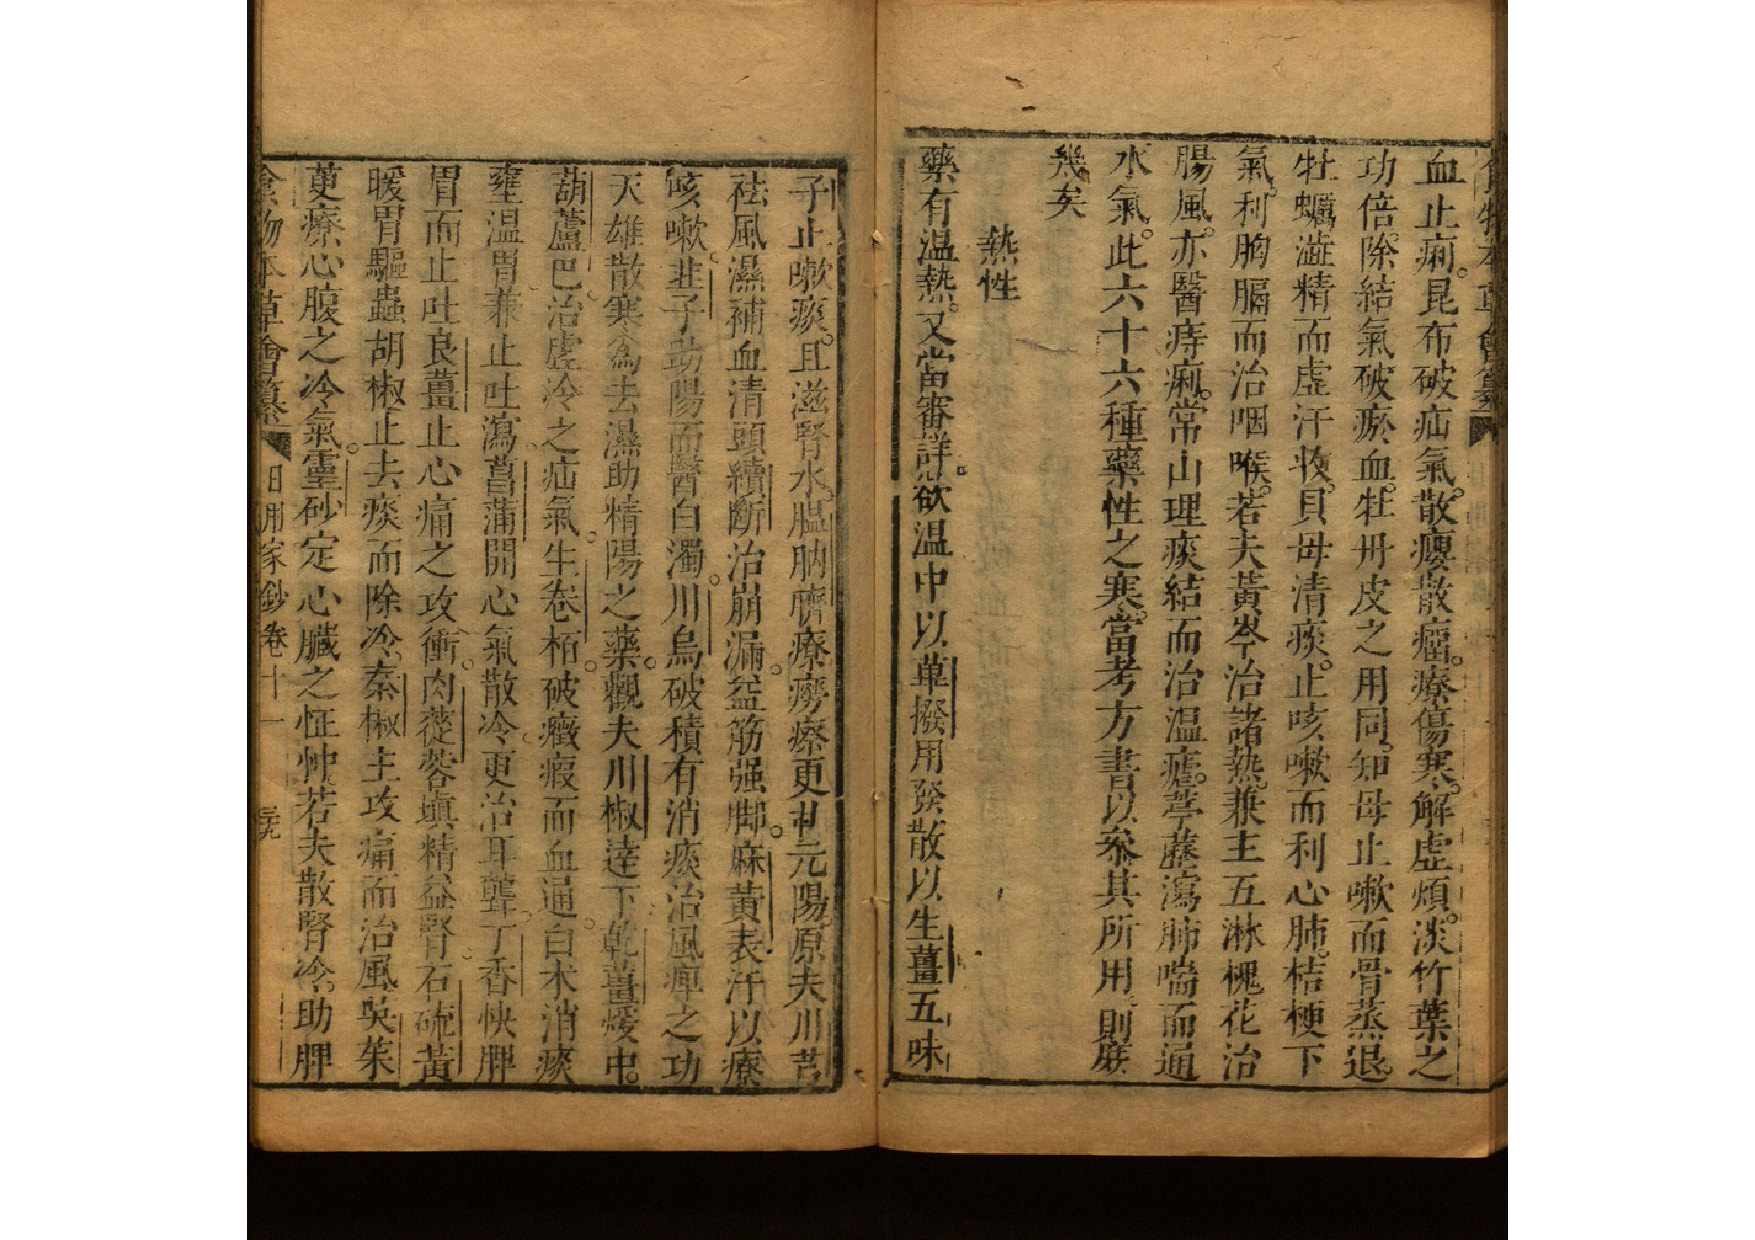 血止痢。昆布破疝氣。散癭散瘤。療傷寒。解虛煩。淡竹葉之
功倍。除結氣破瘀血。牡丹皮之用同。知母止嗽而骨蒸退。
牡蠣澁精而虛汗收。貝母清痰。止咳嗽而利心肺。桔梗下
氣。利胸膈而治咽喉。若夫黃岑治諸熱。兼主五淋槐花治
腸風。亦醫痔痢。常山理痰結而治溫瘧。葶藶瀉肺喘而通
水氣。此六十六種藥性之寒。當考方書以叅其所用則庶
幾矣
熱性
藥有温熱。又當審詳。欲温中以蓽撥用發散以生薑五味
子止嗽痰。且滋腎水。膃肭臍療癆瘵更扶元陽。原夫川芎
祛風濕補血清頭續斷治崩漏。益筋强脚。麻黃表汗以療
咳嗽。韭子助陽而醫白濁。川烏破積有消痰治風痺之功
天雄散寒為去濕助精陽之藥。觀夫川椒達下乾薑煖中。
葫蘆巴治虛冷之疝氣。生卷栢。破癥瘕而血通。白术消痰
壅温胃兼止吐瀉菖蒲開心氣散冷。更治耳聾。丁香快脾
胃而止吐良薑止心痛之攻衝。肉蓯蓉塡精益腎。石硫黃
暖胃驅蟲胡椒止去痰而除冷。秦椒主攻痛而治風吳茱
萸療心腹之冷氣。靈砂定心臟之怔忡。若夫散腎冷。助脾
食物本草會纂 日用家鈔卷十一 三九